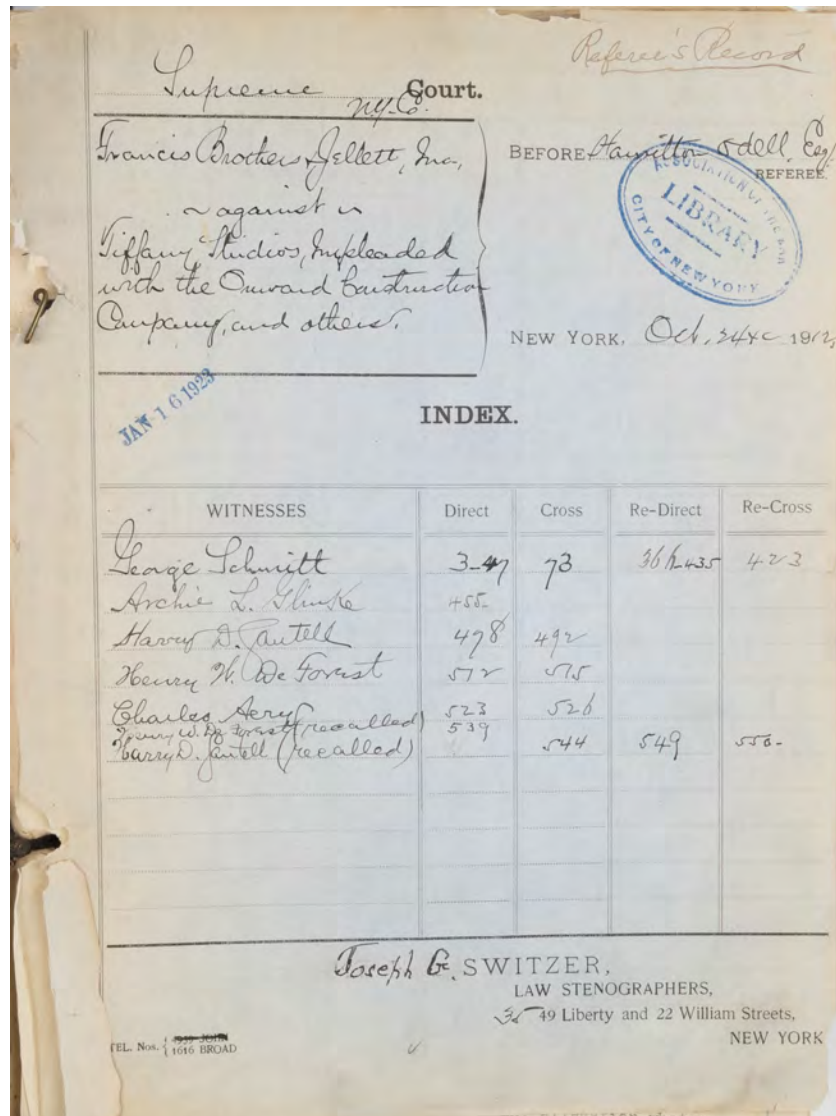 Referee's Record
Supreme Court.
N.Y. Co.
Francis Brothers & Jellett, Inc,
against
Tiffany Studios, Impleaded
with the Onward Construction
Company, and others.
BEFORE Hamilton Odell, Esq.
REFEREE.
ASSOCIATION OF THE BAR
LIBRARY
CITY OF NEW YORK
NEW YORK, Oct. 24 1912
JAN 16 1923
INDEX.
WITNESSES Direct Cross Re-Direct Re-Cross
George Schmitt 3-47 73 435 423
Archie L. Glinke 455-
Harry D. Jantell 478 492
Henry W. De Forest 512 515
Charles Aery 523 526
Henry W. De Forest (recalled) 539
Harry D. Jantell (recalled) 544 549 550-
Joseph G. SWITZER,
LAW STENOGRAPHERS,
49 Liberty and 22 William Streets,
NEW YORK
TEL. Nos. { 1939 JOHN
1616 BROAD